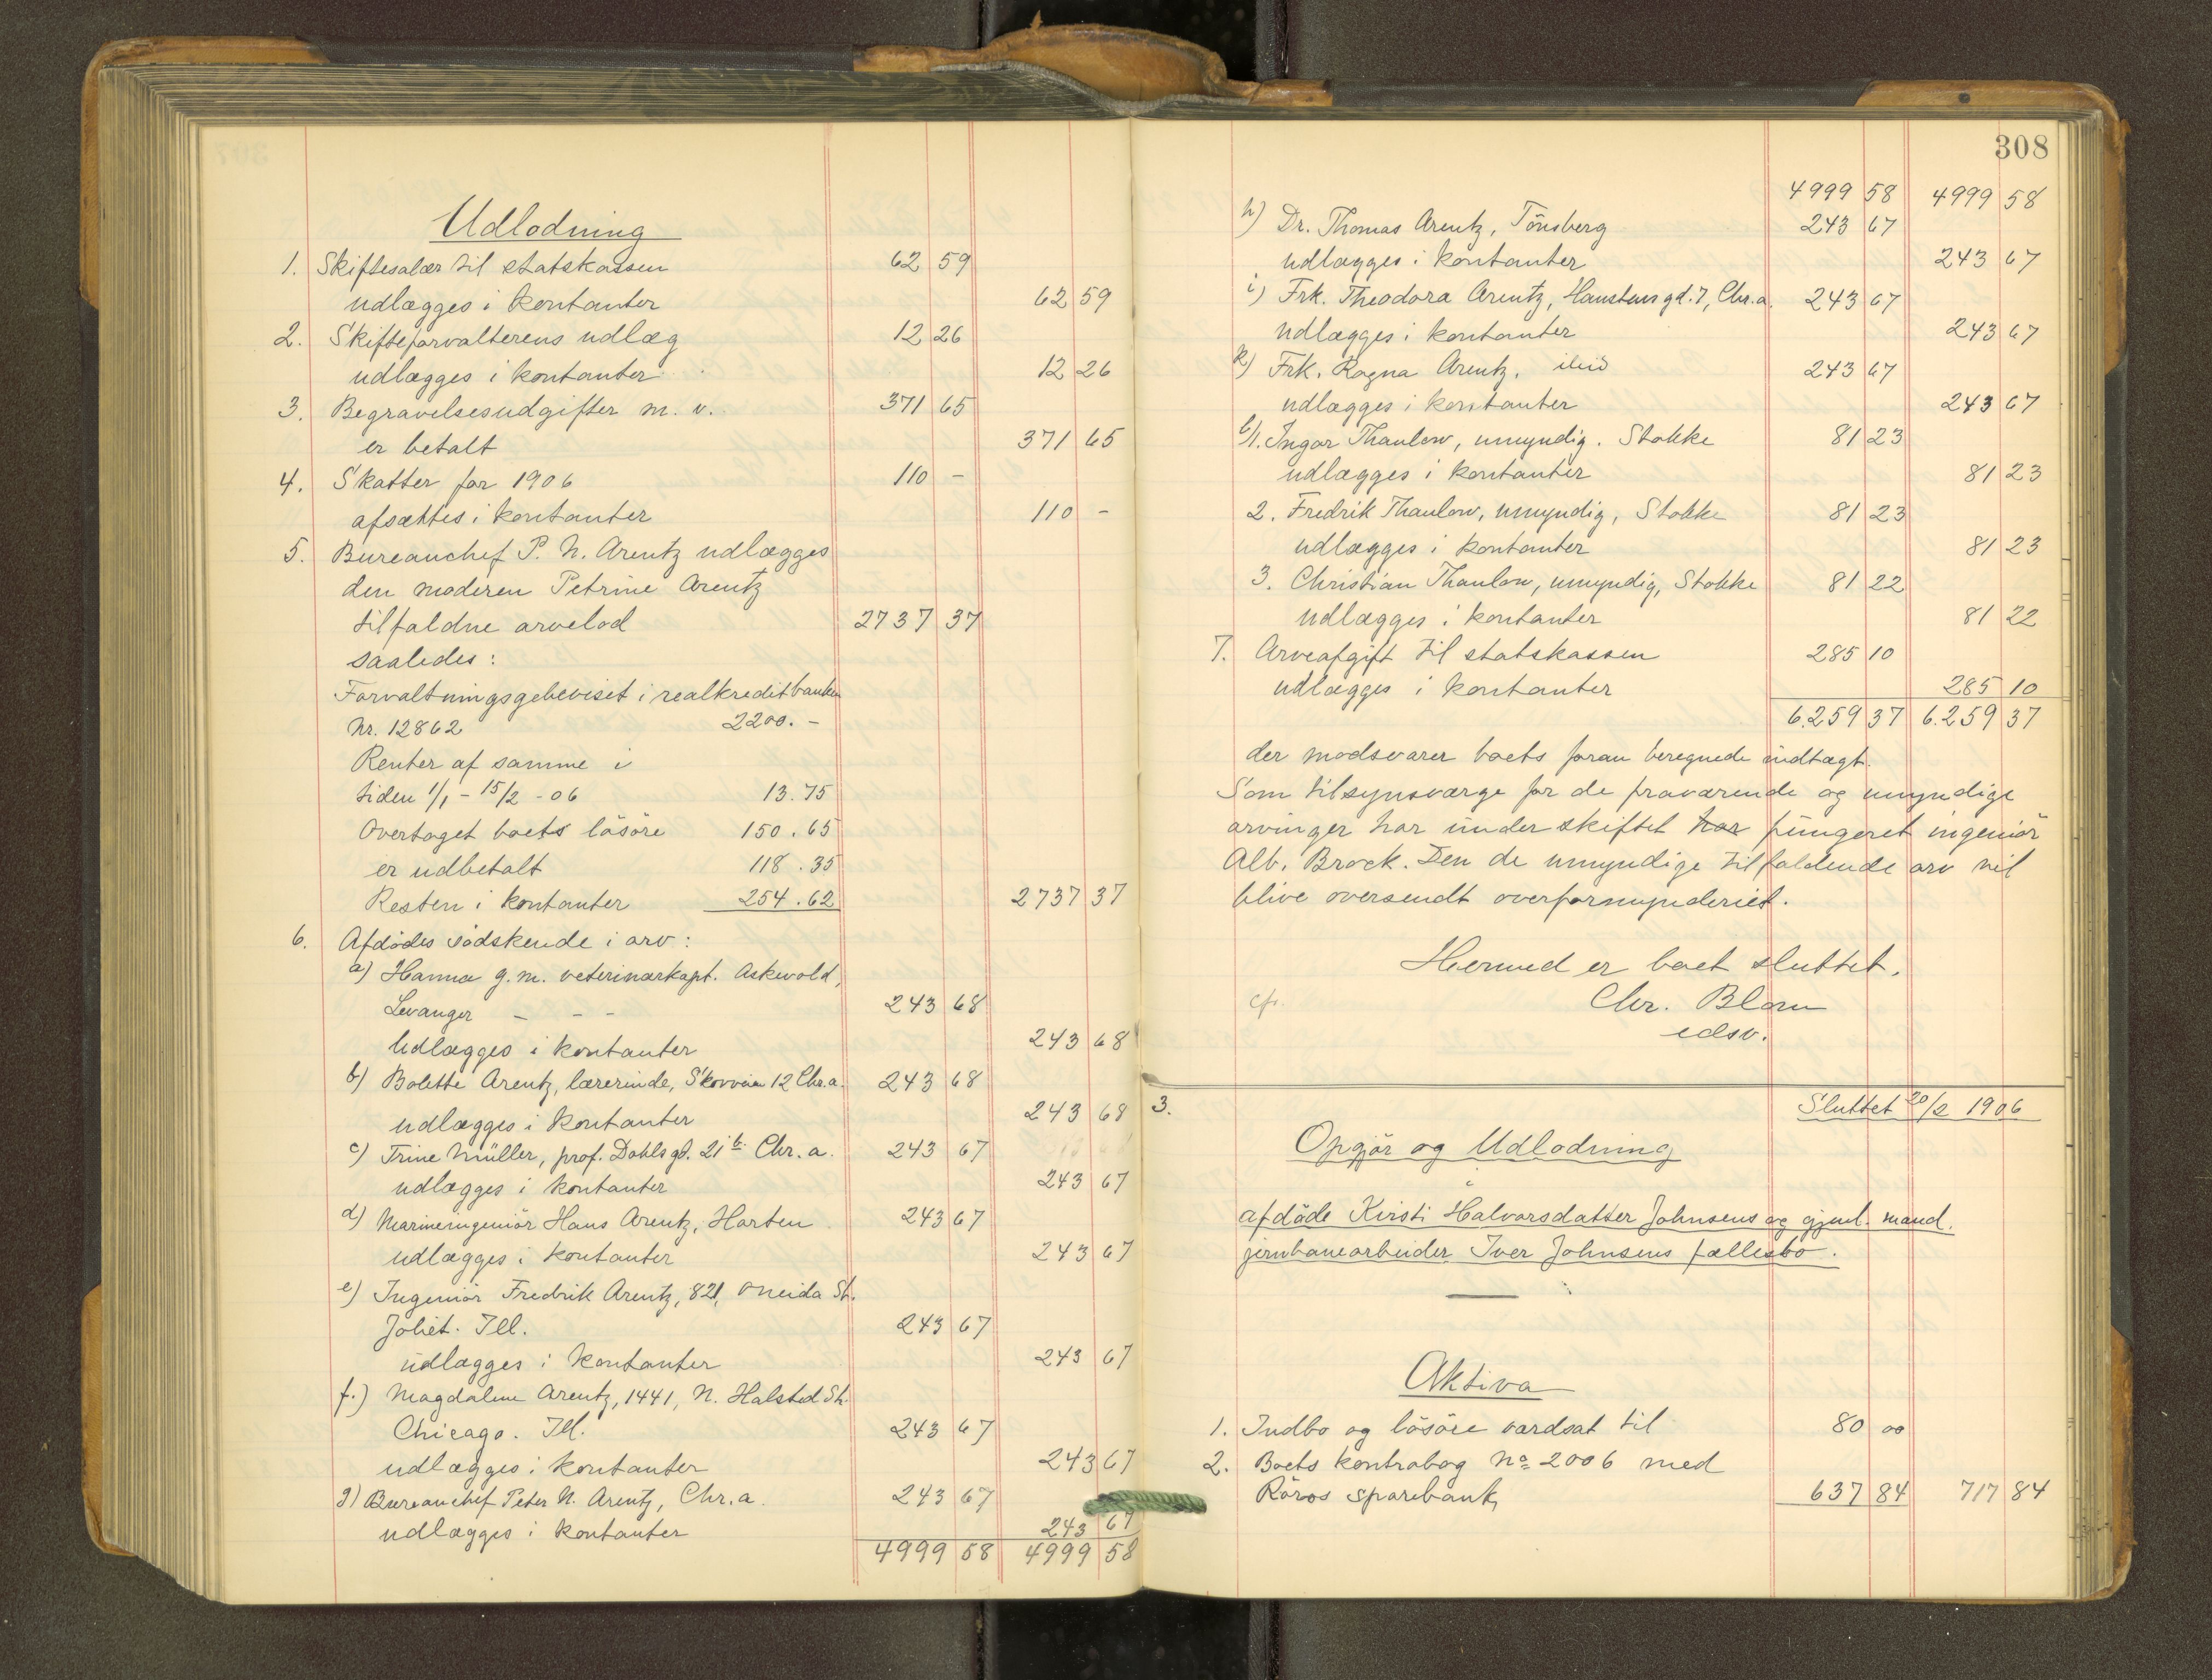 Udlodning
1. Skiftesalær til statskassen 62 59
udlægges i kontanter 62 59
2. Skifteforvalterens udlæg 12 26
udlægges i kontanter 12 26
3. Begravelsesudgifter m. v. 371 65
er betalt 371 65
4. Skatter for 1906 110 -
afsættes i kontanter 110 -
5. Bureauchef P. N. Arentz udlægges
den moderen Petrine Arentz
tilfaldne arvelod 2737 37
saaledes:
Forvaltningsgjebeviset i realkreditbanken
Nr. 12862 2200. -
Renter af samme i
tiden 1/1 - 15/2 - 06 13.75
Overtaget boets lösöre 150.65
er udbetalt 118.35
Resten i kontanter 254.62 2737 37
6. Afdödes södskende i arv:
a) Hanna g. m. veterinærkapt. Askevold,
Levanger - - - 243 68
Udlægges i kontanter 243 68
b) Bolette Arentz, lærerinde, Skovveien 12 Chr.a. 243 68
udlægges i kontanter 243 68
c) Trine Müller, prof. Dahls gd. 21 b. Chr. a. 243 67
udlægges i kontanter 243 67
d) Marineingeniör Hans Arentz, Horten 243 67
udlægges i kontanter 243 67
e) Ingeniör Fredrik Arentz, 821, Oneida St.
Joliet. Ill. 243 67
udlægges i kontanter 243 67
f.) Magdalene Arentz, 1441, N. Halsted St.
Chicago. Ill. 243 67
udlægges i kontanter 243 67
g) Bureauchef Peter N. Arentz, Chr. a. 243 67
udlægges i kontanter 243 67
4999 58 4999 58
308
4999 58 4999 58
h) Dr. Thomas Arentz, Tönsberg 243 67
udlægges i kontanter 243 67
i) Frk. Theodora Arentz, Haustens gd. 7, Chr. a. 243 67
udlægges i kontanter 243 67
k) Frk. Ragna Arentz. ibid 243 67
udlægges i kontanter 243 67
l) 1. Ingar Thaulow, umyndig. Stokke 81 23
udlægges i kontanter 81 23
2. Fredrik Thaulow, umyndig, Stokke 81 23
udlægges i kontanter 81 23
3. Christian Thaulow, umyndig, Stokke 81 22
udlægges i kontanter 81 22
7. Arveafgift til statskassen 285 10
udlægges i kontanter 285 10
6.259 37 6.259 37
der modsvarer boets foran beregnede indtægt.
Som tilsynsværge for de fraværende og umyndige
arvinger har under skiftet har fungeret ingeniör
Alb. Brock. Den de umyndige tilfaldende arv vil
blive oversendt overformynderiet.
Hermed er boet sluttet.
cfr. Chr. Blom
edsv.
3. Sluttet 20/2 1906
Opgjör og Udlodning
i
afdöde Kirsti Halvorsdatter Johnsens og gjenl. mand.
jernbanearbeider Iver Johnsens fællesbo.
Aktiva
1. Indbo og lösöre værdsat til 80 00
2. Boets kontrabog No 2006 med
Röros sparebank, 637 84 717 84